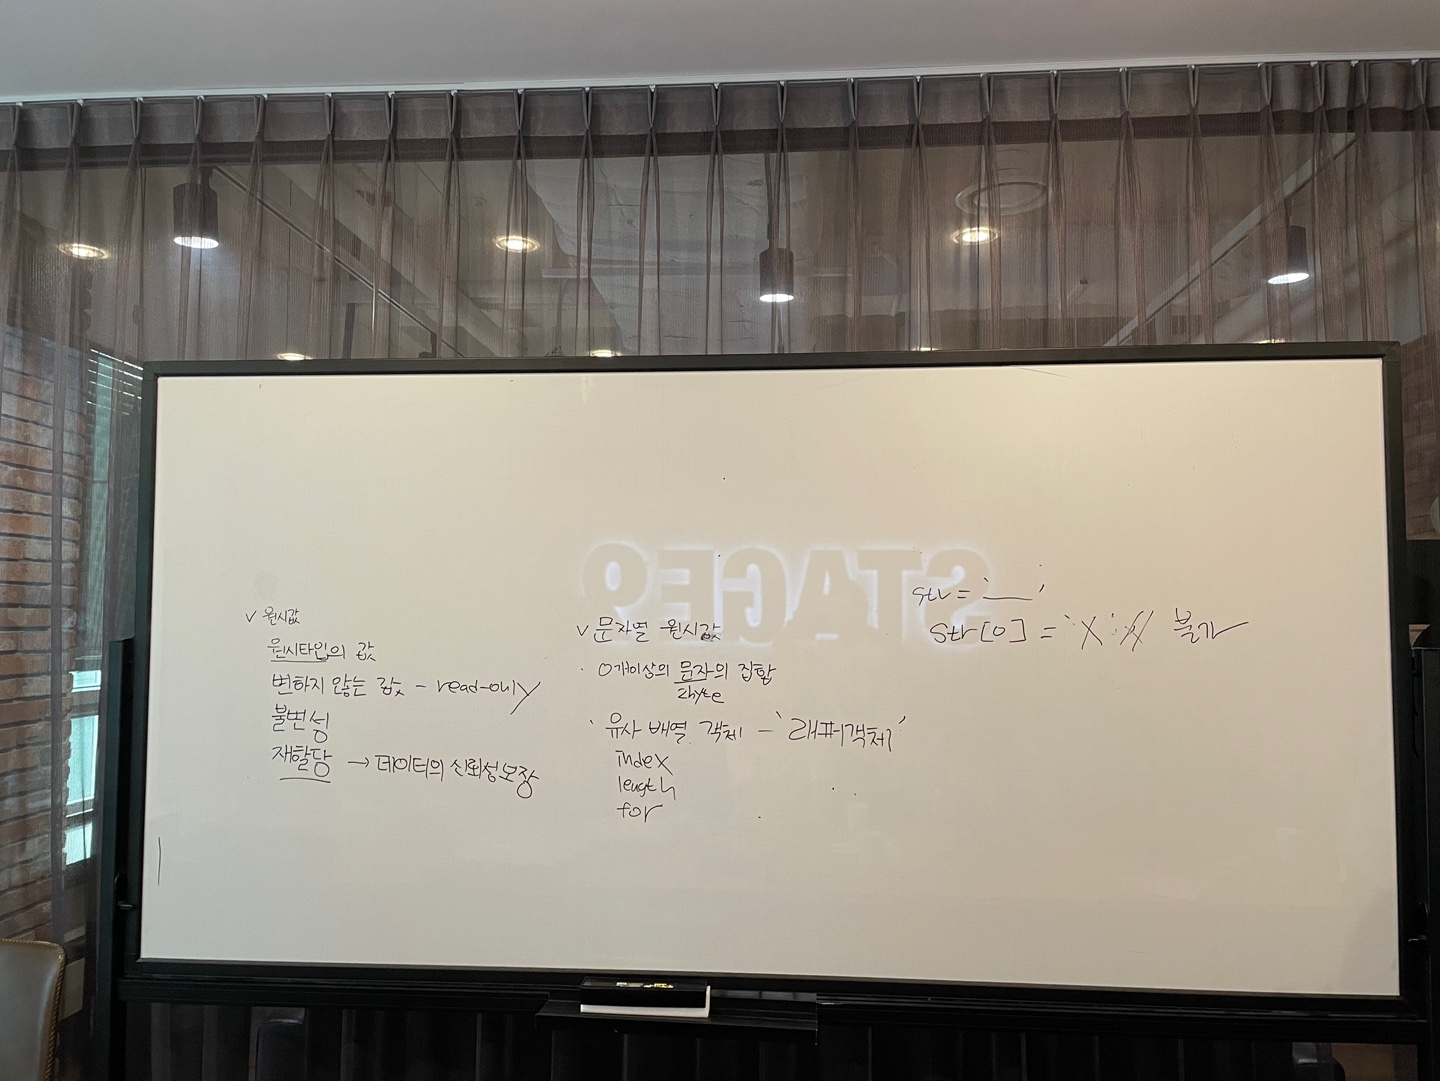 ✓ 원시값
원시타입의 값
변하지 않는 값 - read-only
불변성
재할당 → 데이터의 신뢰성 보장
✓ 문자열 원시값
· 0개이상의 문자의 집합
2byte
· 유사 배열 객체 - '래퍼객체'
index
length
for
str = '__'
str[0] = 'X' 불가
STAGE9